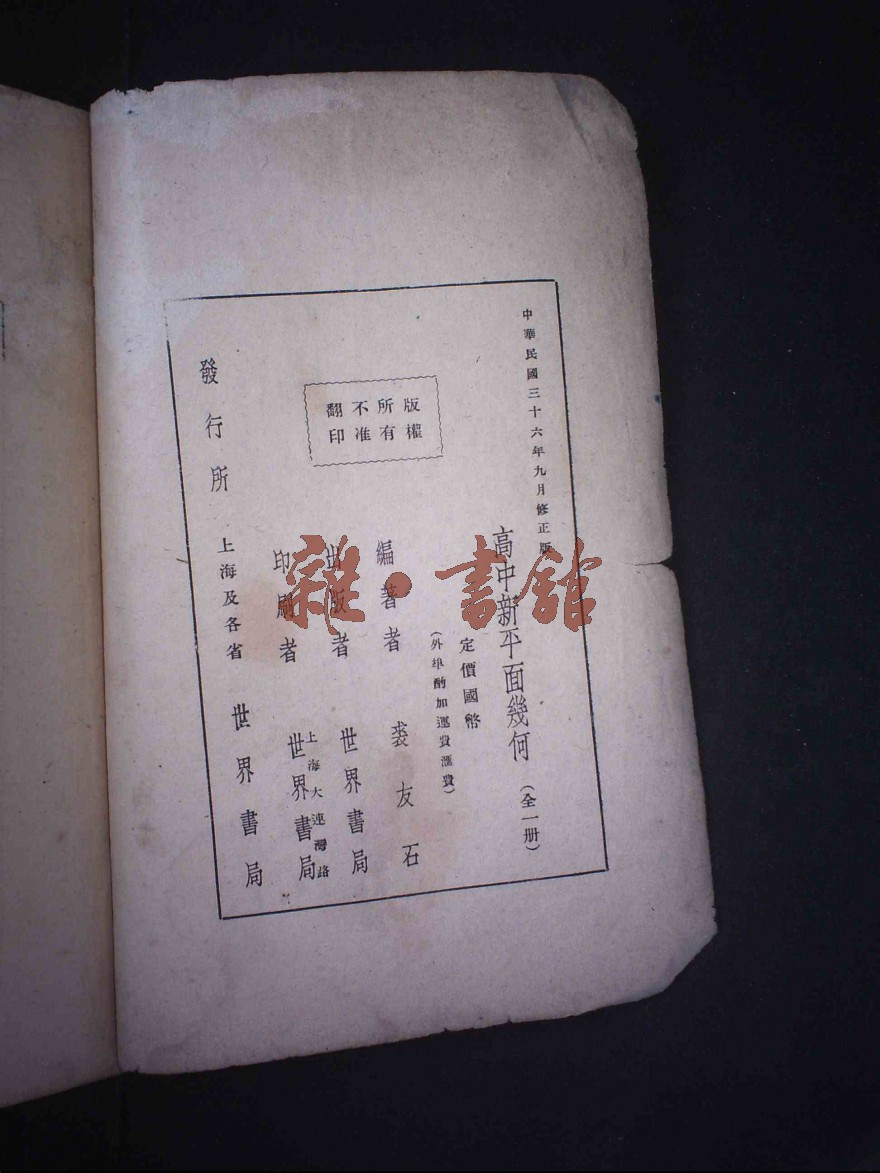 中華民國三十六年九月修正版
高中新平面幾何(全一册)
定價國幣
(外埠酌加運費滙費)
版權
所有
不准
翻印
編著者 裘友石
出版者 世界書局
上海大連灣路
印刷者 世界書局
發行所 上海及各省 世界書局
雜·書館